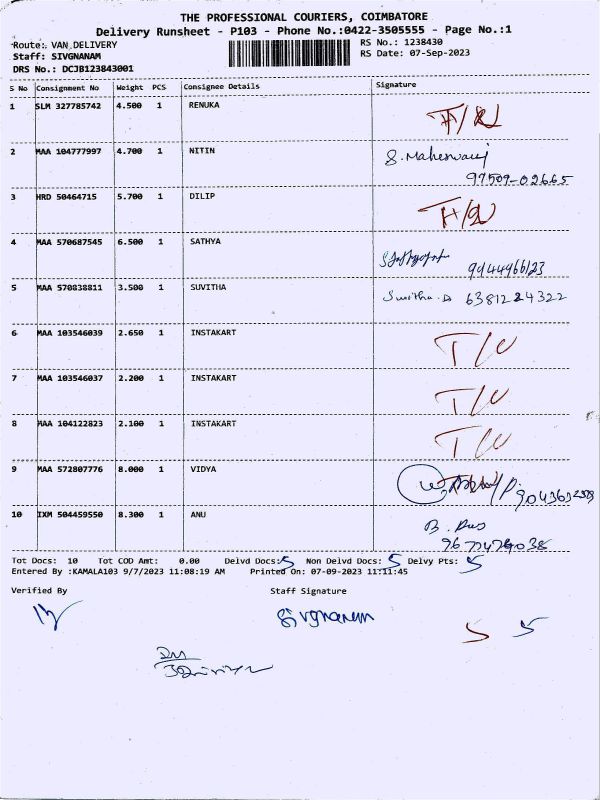 THE PROFESSIONAL COURIERS, COIMBATORE
Delivery Runsheet - P103 - Phone No.:0422-3505555 - Page No.:1
Route: VAN DELIVERY RS No.: 1238430
Staff: SIVGNANAM RS Date: 07-Sep-2023
DRS No.: DCJB123843001
S No Consignment No Weight PCS Consignee Details Signature
1 SLM 327785742 4.500 1 RENUKA
2 MAA 104777997 4.700 1 NITIN S. Maheswari
97509-02665
3 HRD 50464715 5.700 1 DILIP
4 MAA 570687545 6.500 1 SATHYA
9944966123
5 MAA 570838811 3.500 1 SUVITHA Suvitha. D 6381224322
6 MAA 103546039 2.650 1 INSTAKART T/U
7 MAA 103546037 2.200 1 INSTAKART T/U
8 MAA 104122823 2.100 1 INSTAKART T/U
9 MAA 572807776 8.000 1 VIDYA
10 IXM 504459550 8.300 1 ANU
Tot Docs: 10 Tot COD Amt: 0.00 Delvd Docs: 5 Non Delvd Docs: 5 Delvy Pts: 5
Entered By :KAMALA103 9/7/2023 11:08:19 AM Printed On: 07-09-2023 11:11:45
Verified By Staff Signature
Sivgnanam
5 5